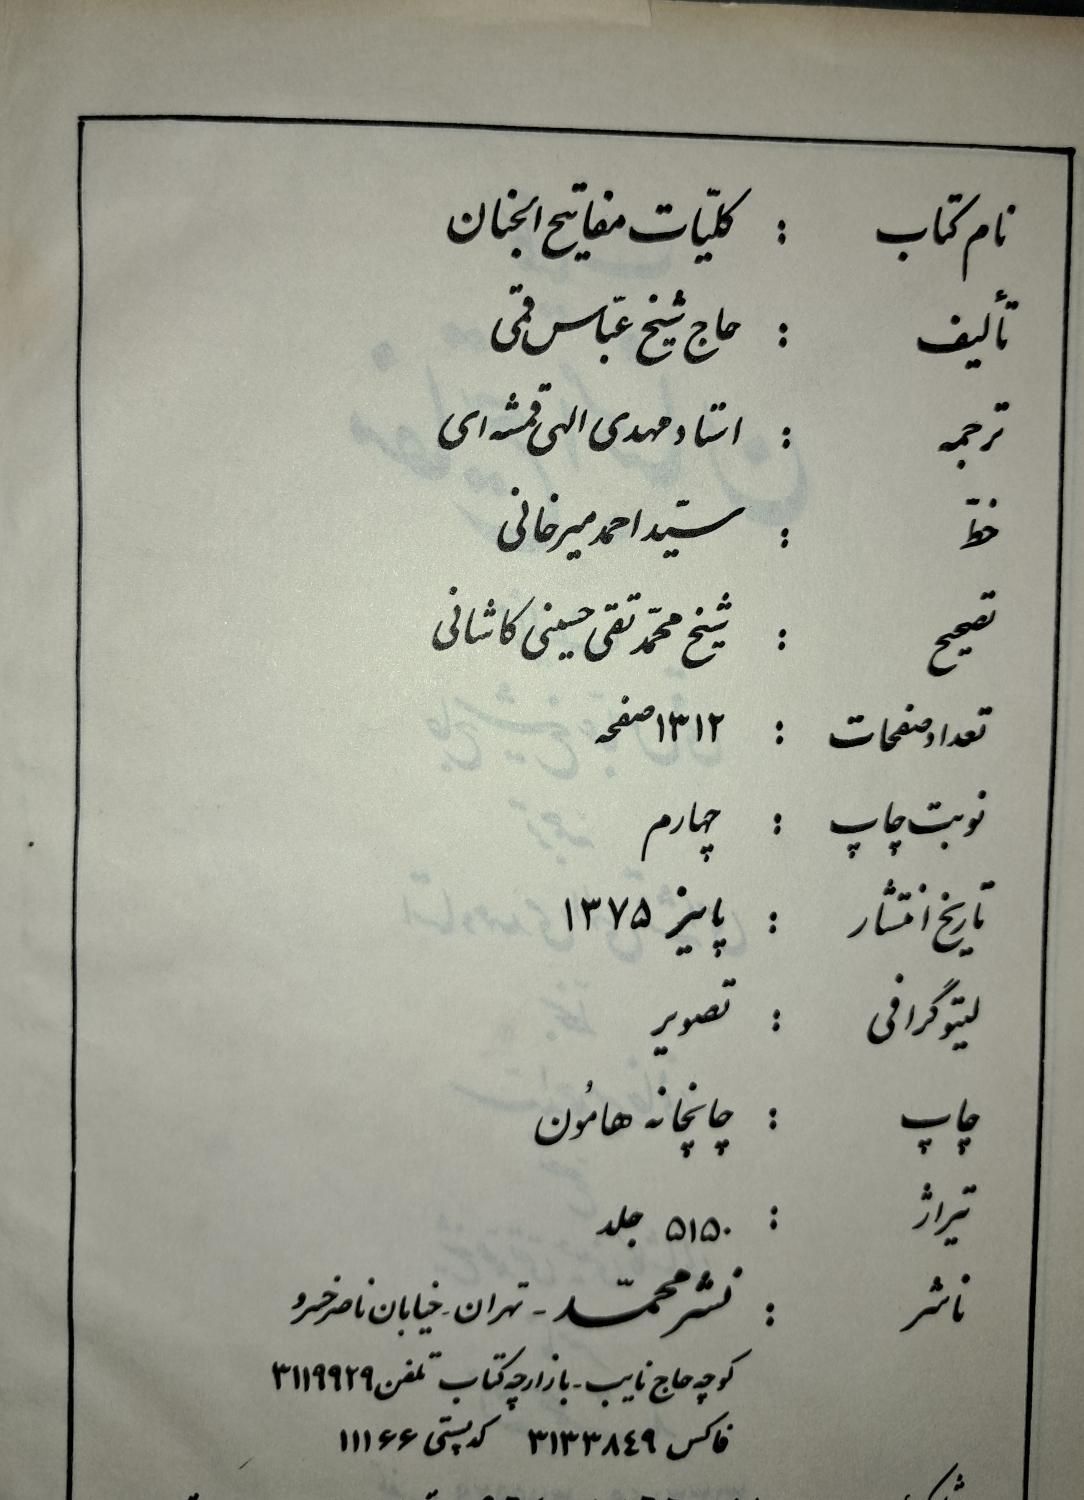 نام کتاب : کلیّات مفاتیح الجنان
تألیف : حاج شیخ عبّاس قمّی
ترجمه : استاد مهدی الهی قمشه ای
خطّ : سیّد احمد میرخانی
تصحیح : شیخ محمّد تقی حسینی کاشانی
تعداد صفحات : ۱۳۱۲ صفحه
نوبت چاپ : چهارم
تاریخ انتشار : پاییز ۱۳۷۵
لیتوگرافی : تصویر
چاپ : چاپخانه هامُون
تیراژ : ۵۱۵۰ جلد
ناشر : نشر محمّد - تهران - خیابان ناصرخسرو
کوچه حاج نایب - بازارچه کتاب تلفن ۳۱۱۹۹۲۹
فاکس ۳۱۳۳۸٤۹ کدپستی ۱۱۱۶۶